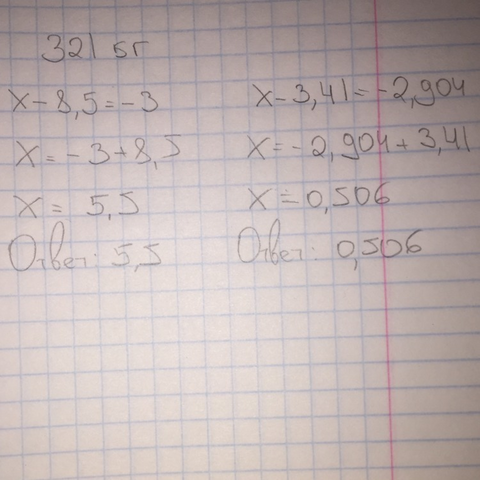 321 бг
x - 8,5 = -3
x = -3 + 8,5
x = 5,5
Ответ: 5,5
x - 3,41 = -2,904
x = -2,904 + 3,41
x = 0,506
Ответ: 0,506